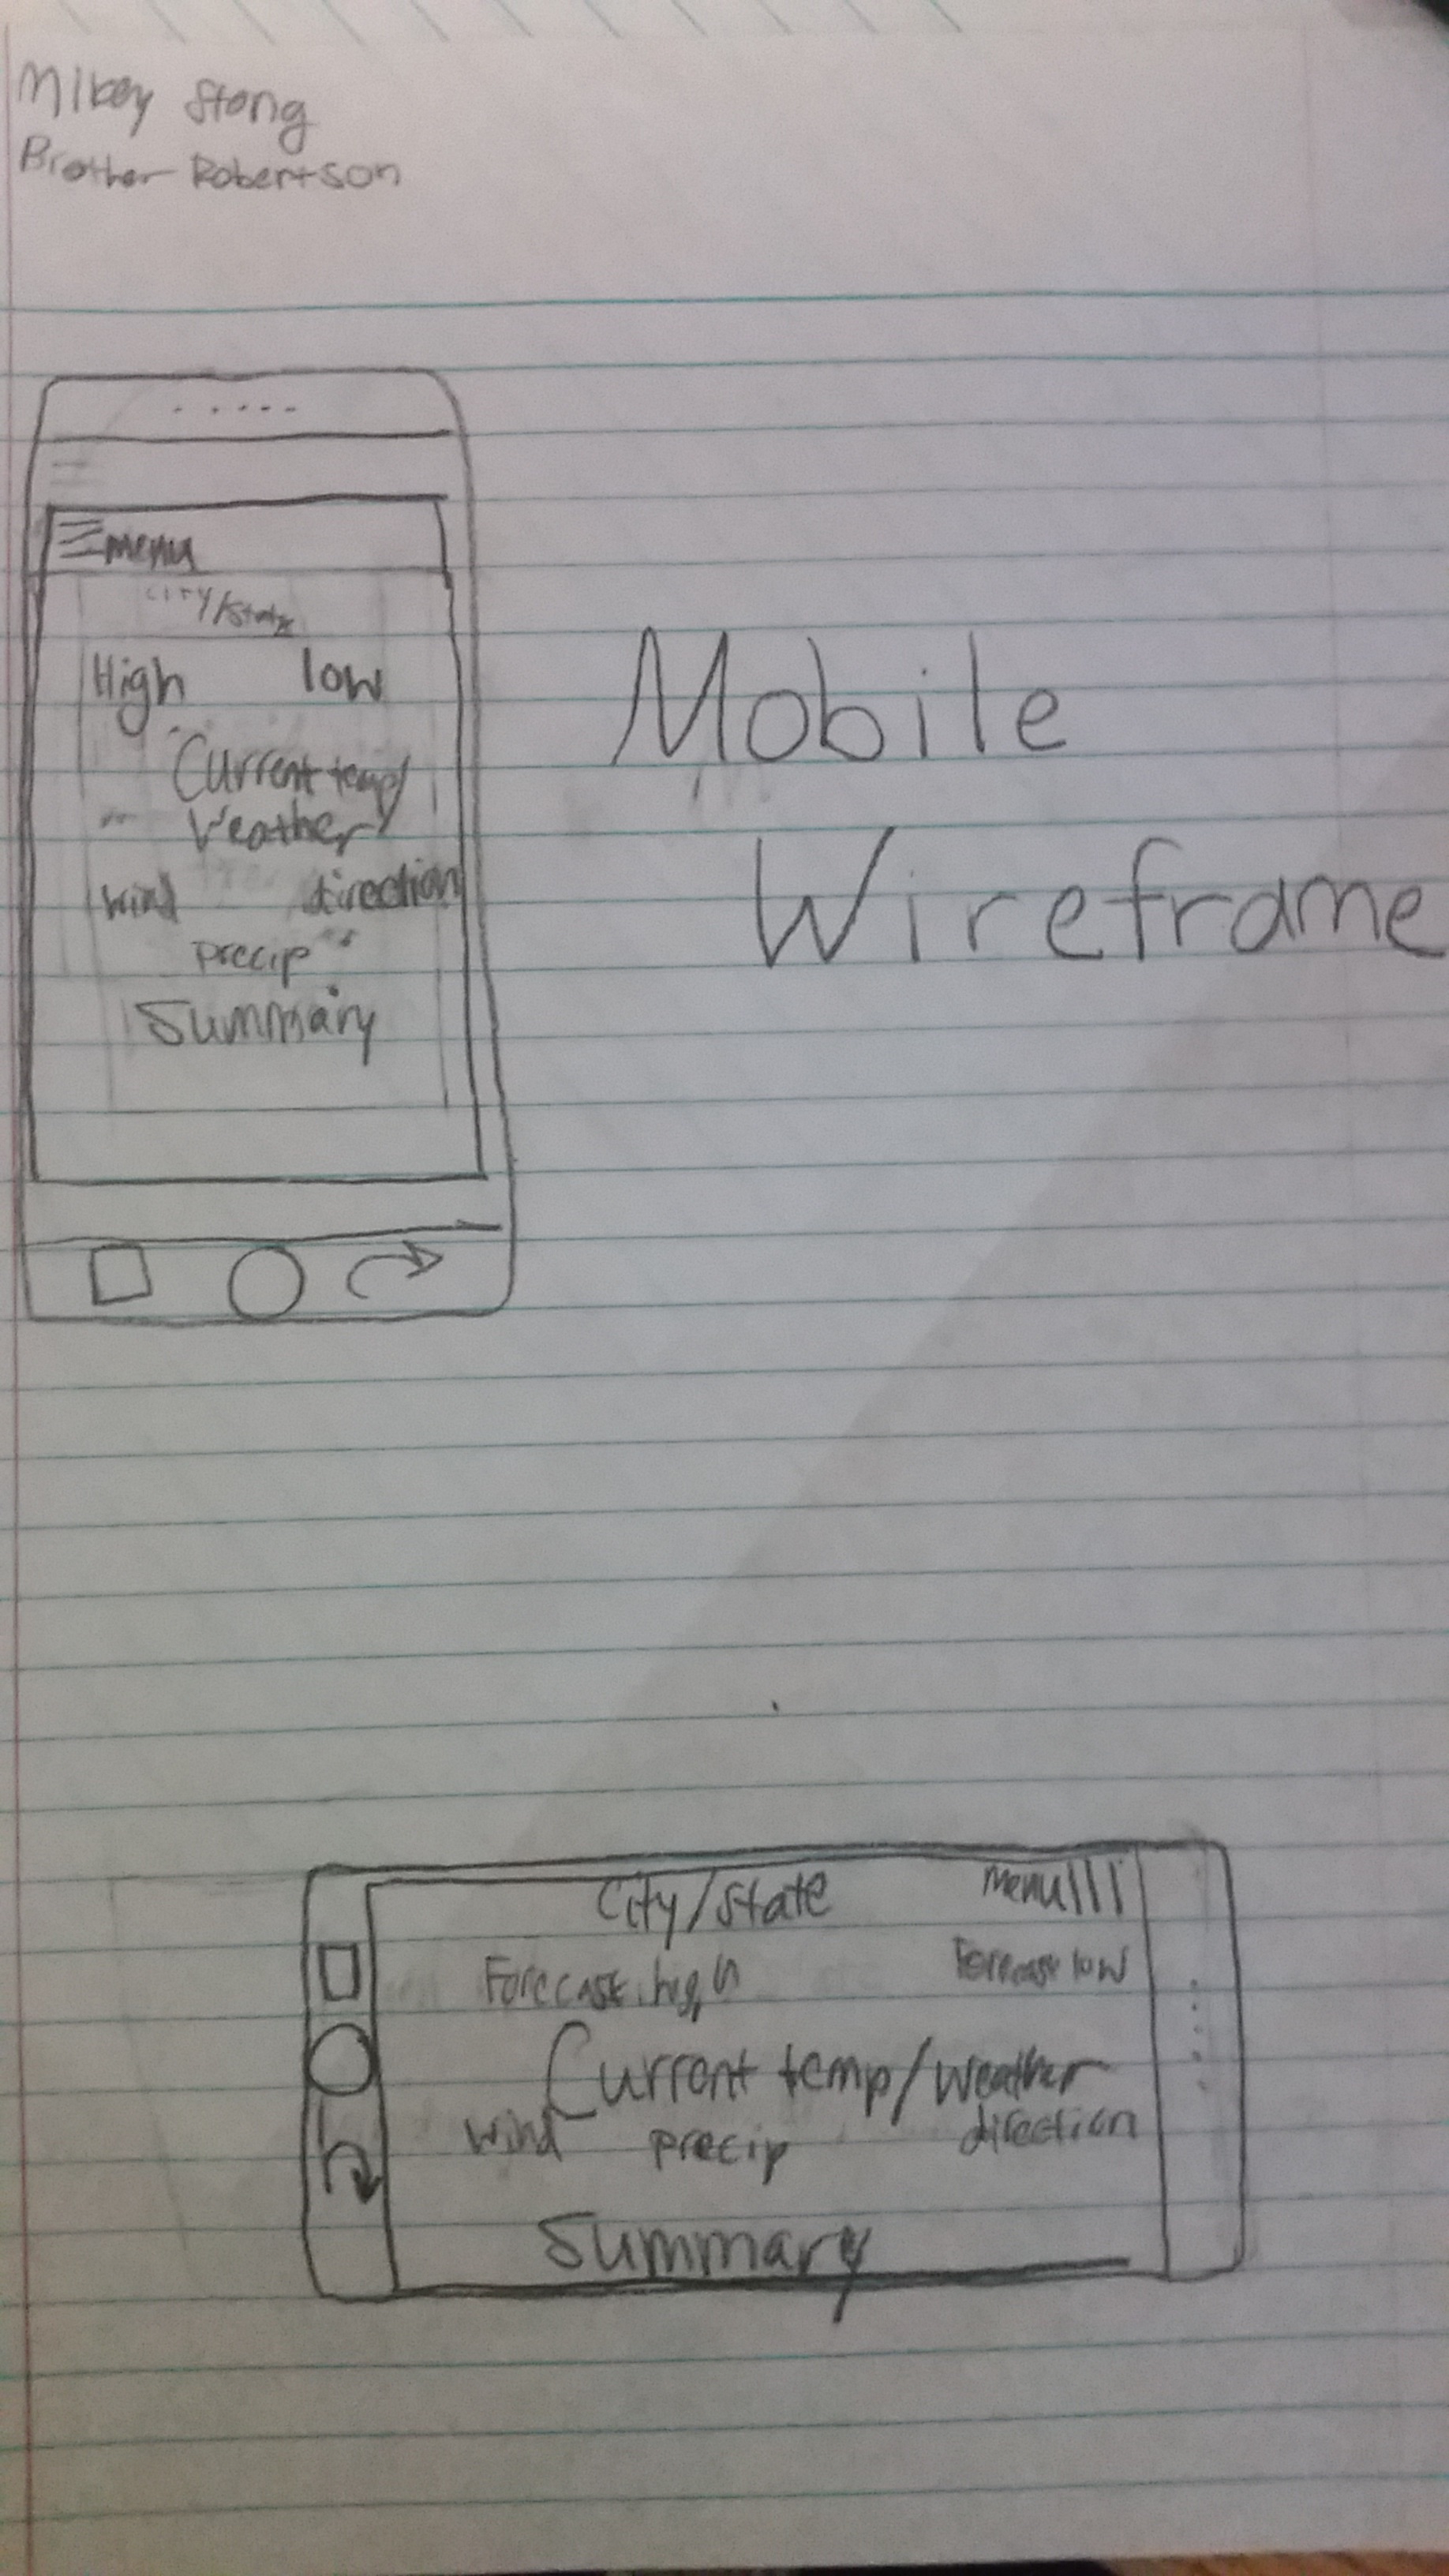 Mikey Stong
Brother Robertson
menu
City/State
High low
Current temp/
Weather
wind direction
precip
Summary
Mobile
Wireframe
City/State menu
Forecast high Forecast low
Current temp/weather
wind precip direction
Summary